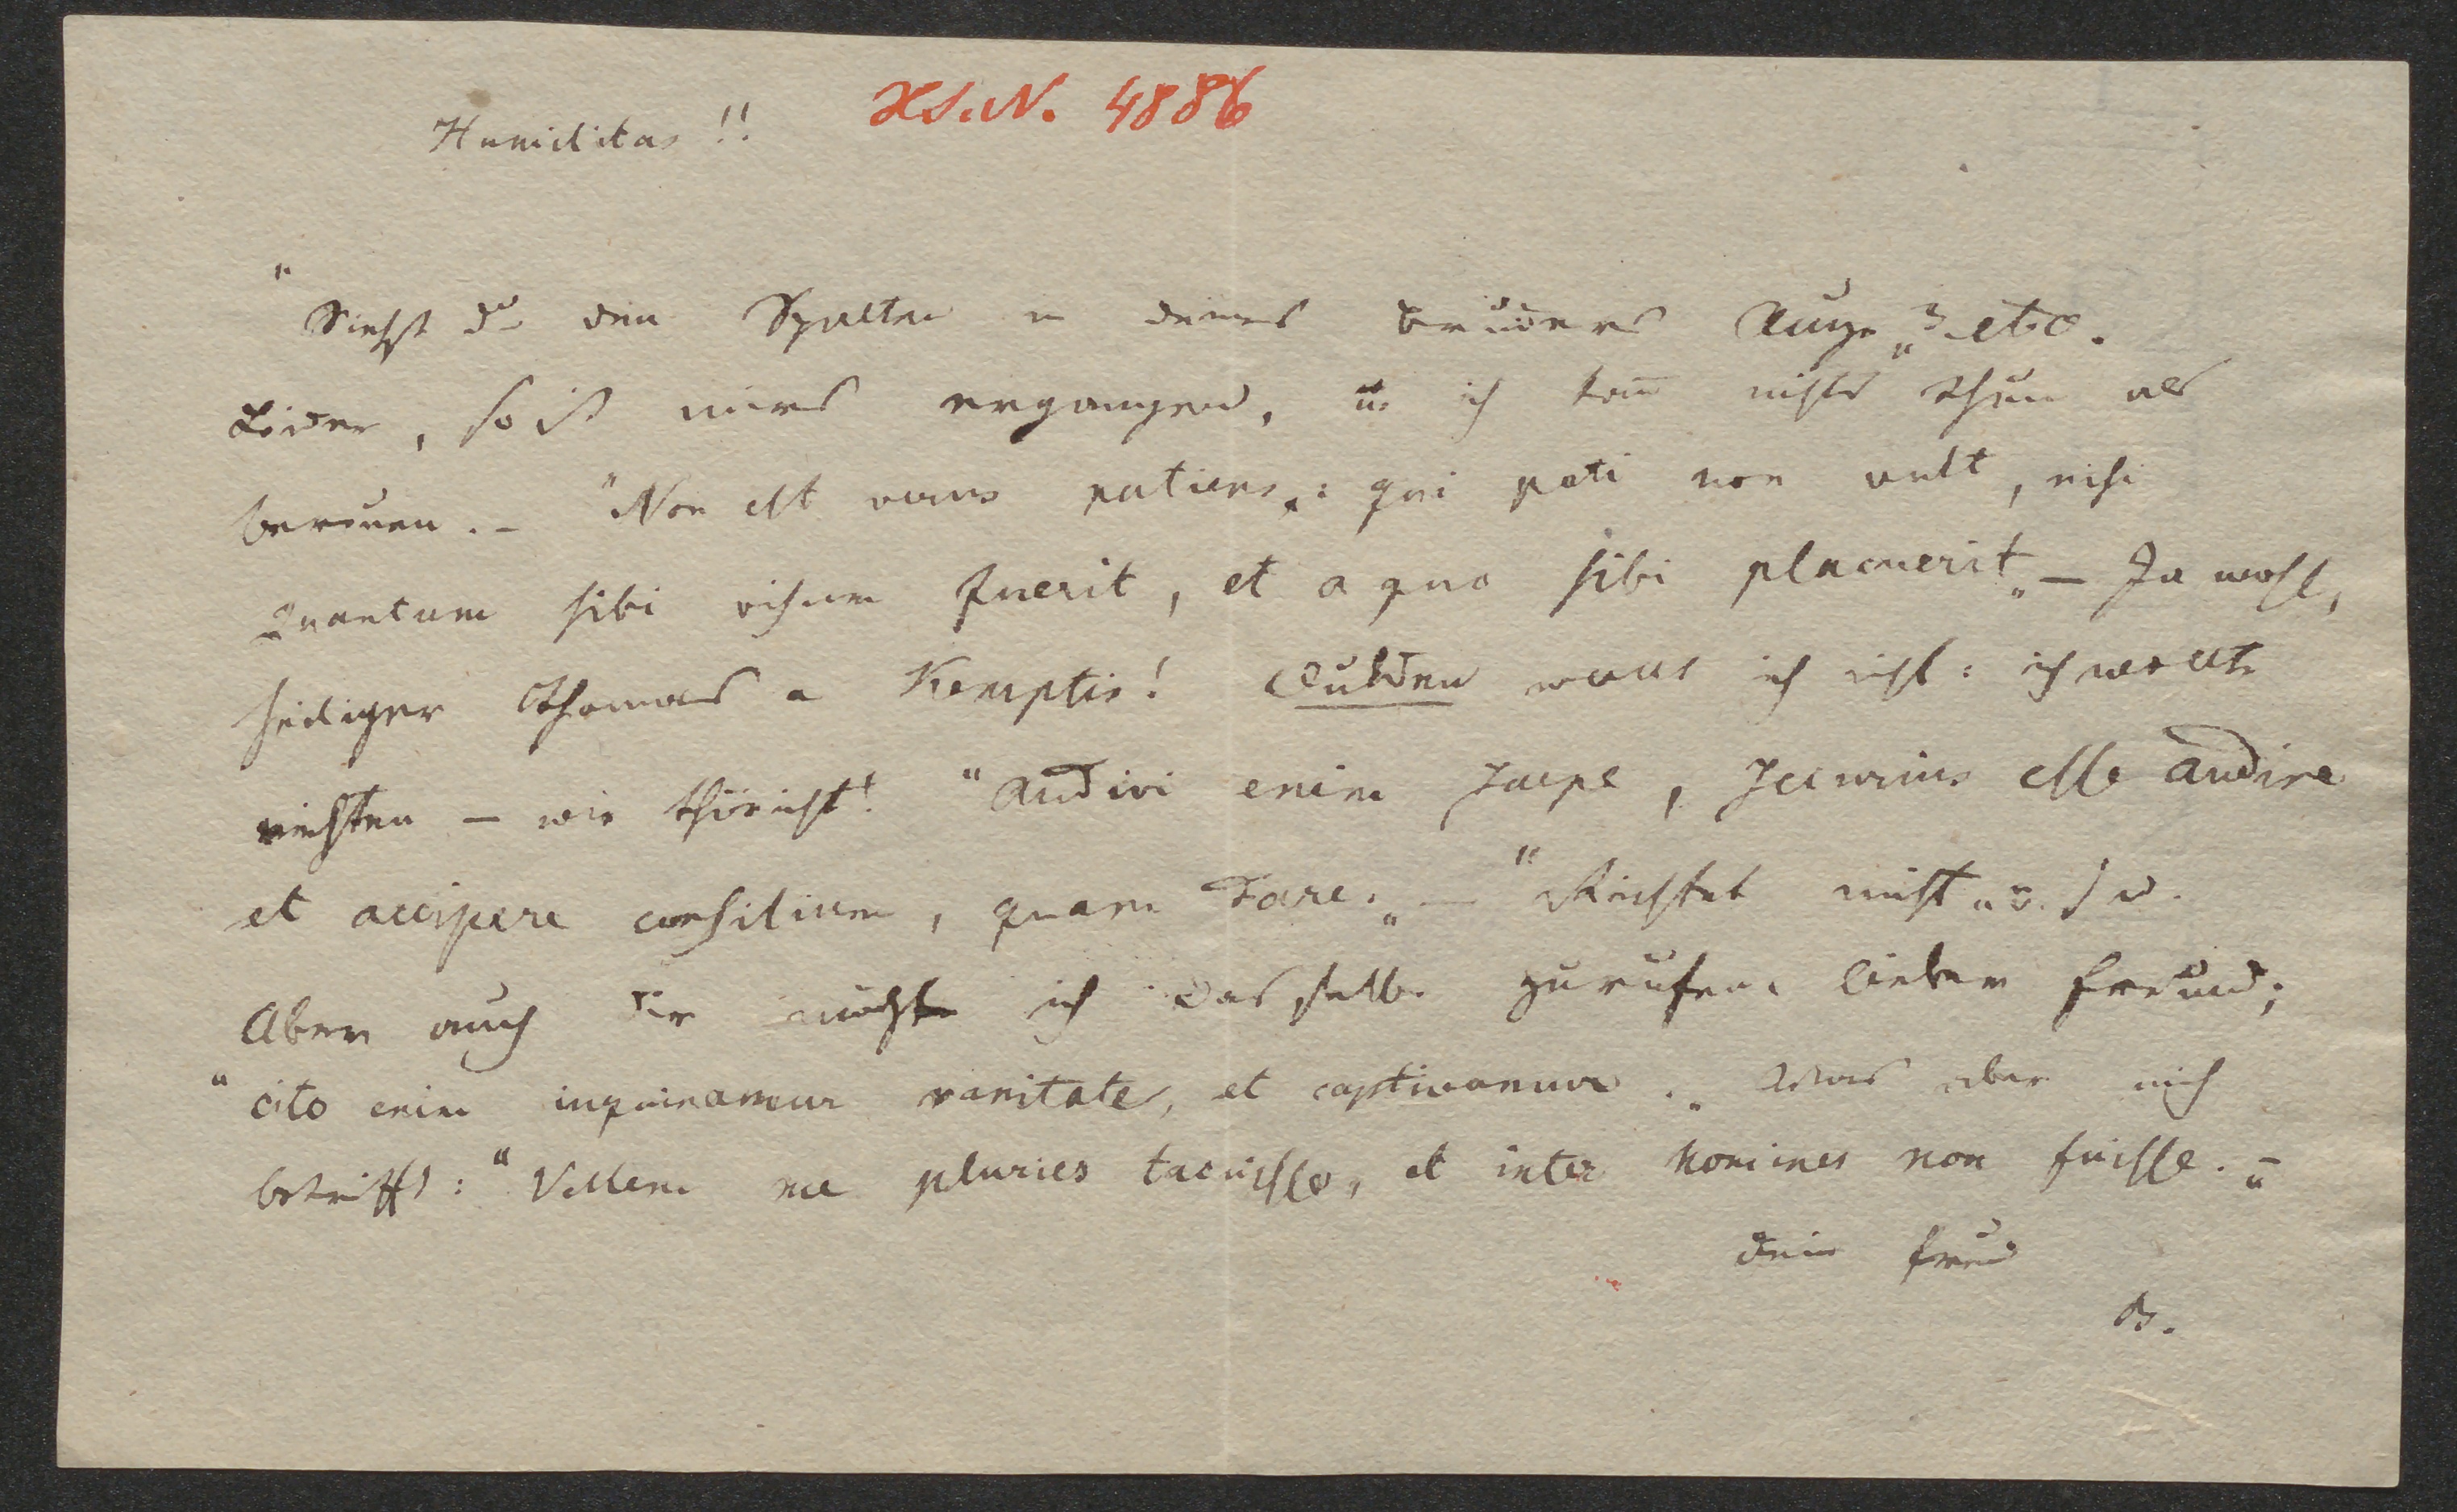 Humilitas!!
HS.N. 4886
"Siehst du den Splitter in deines Bruders Auge" etc.
Leider, so ist mirs ergangen, u. ich kan̄ nichts thun als
bereuen. – "Non est verus patiens: qui pati non vult, nisi
quantum sibi visum fuerit, et a quo sibi placuerit" – Ja wohl,
heiliger Thomas a Kempis! Dulden wollt ich nicht: ich wollte
richten – wie thöricht! "Audivi enim saepe, securius esse audire
et accipere consilium, quam dare." – "Richtet nicht" u. s w.
Aber auch dir möchte ich dasselbe zurufen, lieber Freund;
"cito enim inquinamur vanitate, et captivamur." Was aber mich
betrifft: "Vellem me pluries tacuisse, et inter homines non fuisse."
Dein Freund
B.